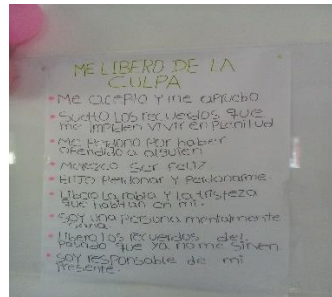 ME LIBERO DE LA
CULPA
• Me acepto y me apruebo
• Suelto los recuerdos que
me impiden vivir en plenitud
• Me perdono por haber
ofendido a alguien
• Merezco ser feliz
• Elijo perdonar y perdonarme
• Libero la rabia y la tristeza
que habitan en mi.
• Soy una persona mentalmente
sana.
• Libero los recuerdos del
pasado que ya no me sirven.
• Soy responsable de mi
presente.